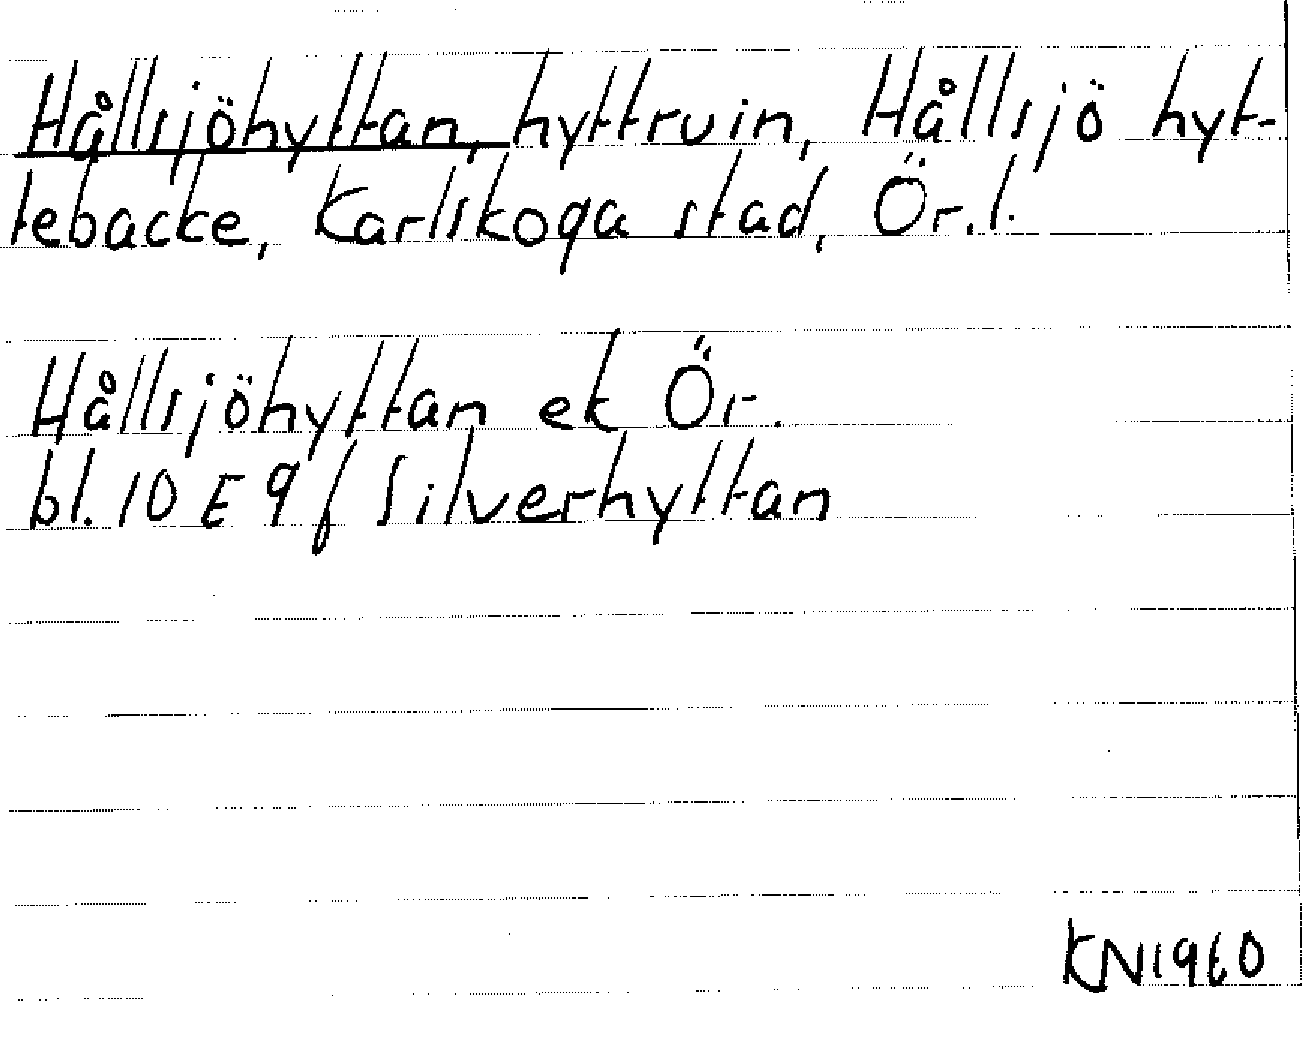 Hållsjöhyttan, hyttruin, Hållsjö hyt-
tebacke, Karlskoga stad, Ör.l.
Hållsjöhyttan ek Ör.
bl. 10 E 9 f Silverhyttan
KN1960